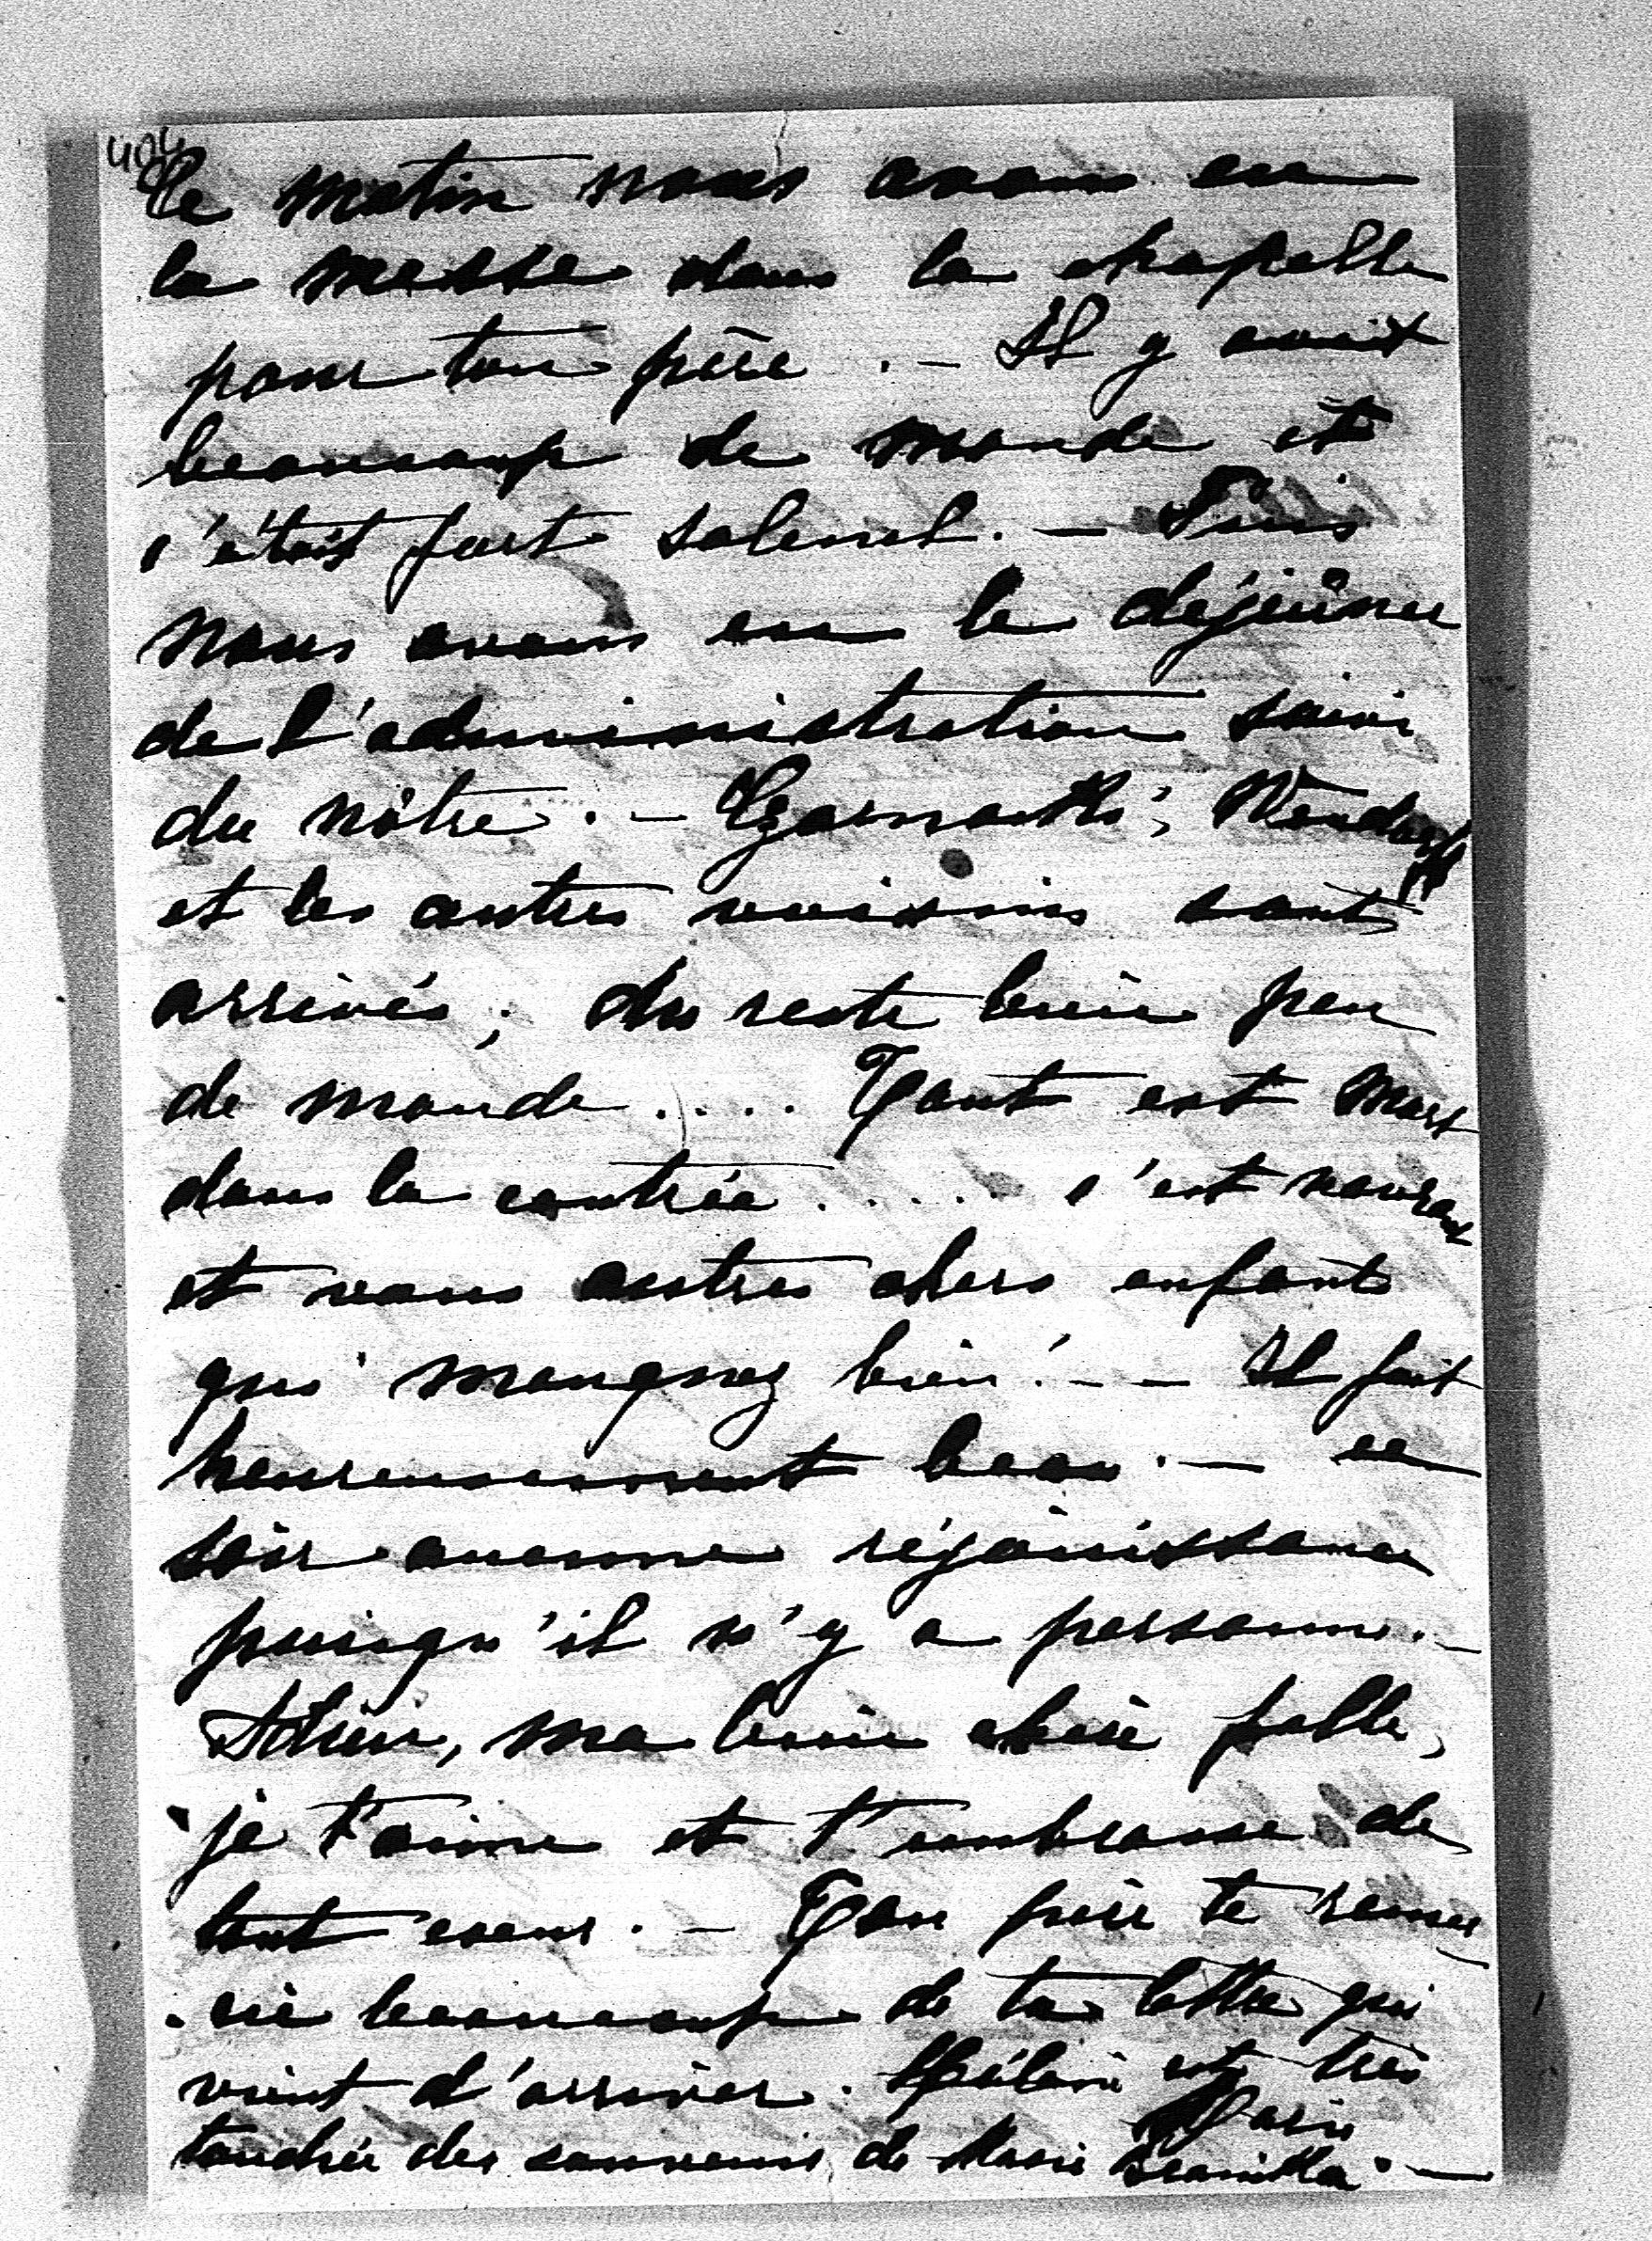 404
Ce matin nous avons eu
la messe dans la chapelle
pour ton père. — Il y avait
beaucoup de monde et
c'était fort solennel. — Puis
nous avons eu le déjeûner
de l'administration suivi
du nôtre. — Czarnecki;
et les autres voisins sont
arrivés; du reste bien peu
de monde .... Tout est mort
dans la contrée ..... c'est navrant
et vous autres chers enfants
qui manquez bien! — — Il fait
heureusement beau. — ce
soir aucune réjouissance
puisqu'il n'y a personne. —
Adieu, ma bien chère folle,
je t'aime et t'embrasse de
tout coeur. — Ton père te remer
cie beaucoup de ta lettre qui
vient d'arriver. Hélène est très
Marie
touchée des souvenirs de Marie